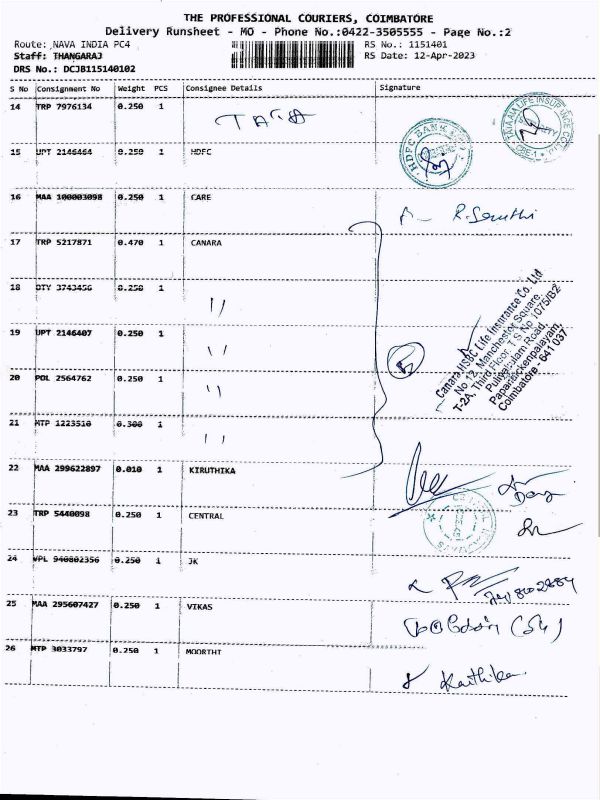 THE PROFESSIONAL COURIERS, COIMBATORE
Delivery Runsheet - MO - Phone No.:0422-3505555 - Page No.:2
Route: NAVA INDIA PC4 RS No.: 1151401
Staff: THANGARAJ RS Date: 12-Apr-2023
DRS No.: DCJB115140102
S No Consignment No Weight PCS Consignee Details Signature
14 TRP 7976134 0.250 1 TATA
15 UPT 2146464 0.250 1 HDFC
HDFC BANK
TATA AIA LIFE INSURANCE CO.
16 MAA 100003098 0.250 1 CARE
17 TRP 5217871 0.470 1 CANARA
18 OTY 3743456 0.250 1  11
19 UPT 2146407 0.250 1 11
20 POL 2564762 0.250 1 11
21 MTP 1223510 0.300 1 11
Canara HSBC Life Insurance Co. Ltd
No 12, Manchester Square,
T-2A, Third Floor, T S No 1075/B2
Puliyakulam Road,
Papanaickenpalayam,
Coimbatore - 641 037
22 MAA 299622897 0.010 1 KIRUTHIKA
23 TRP 5440098 0.250 1 CENTRAL
24 VPL 940802356 0.250 1 JK
25 MAA 295607427 0.250 1 VIKAS
26 MTP 3033797 0.250 1 MOORTHI
Karthika